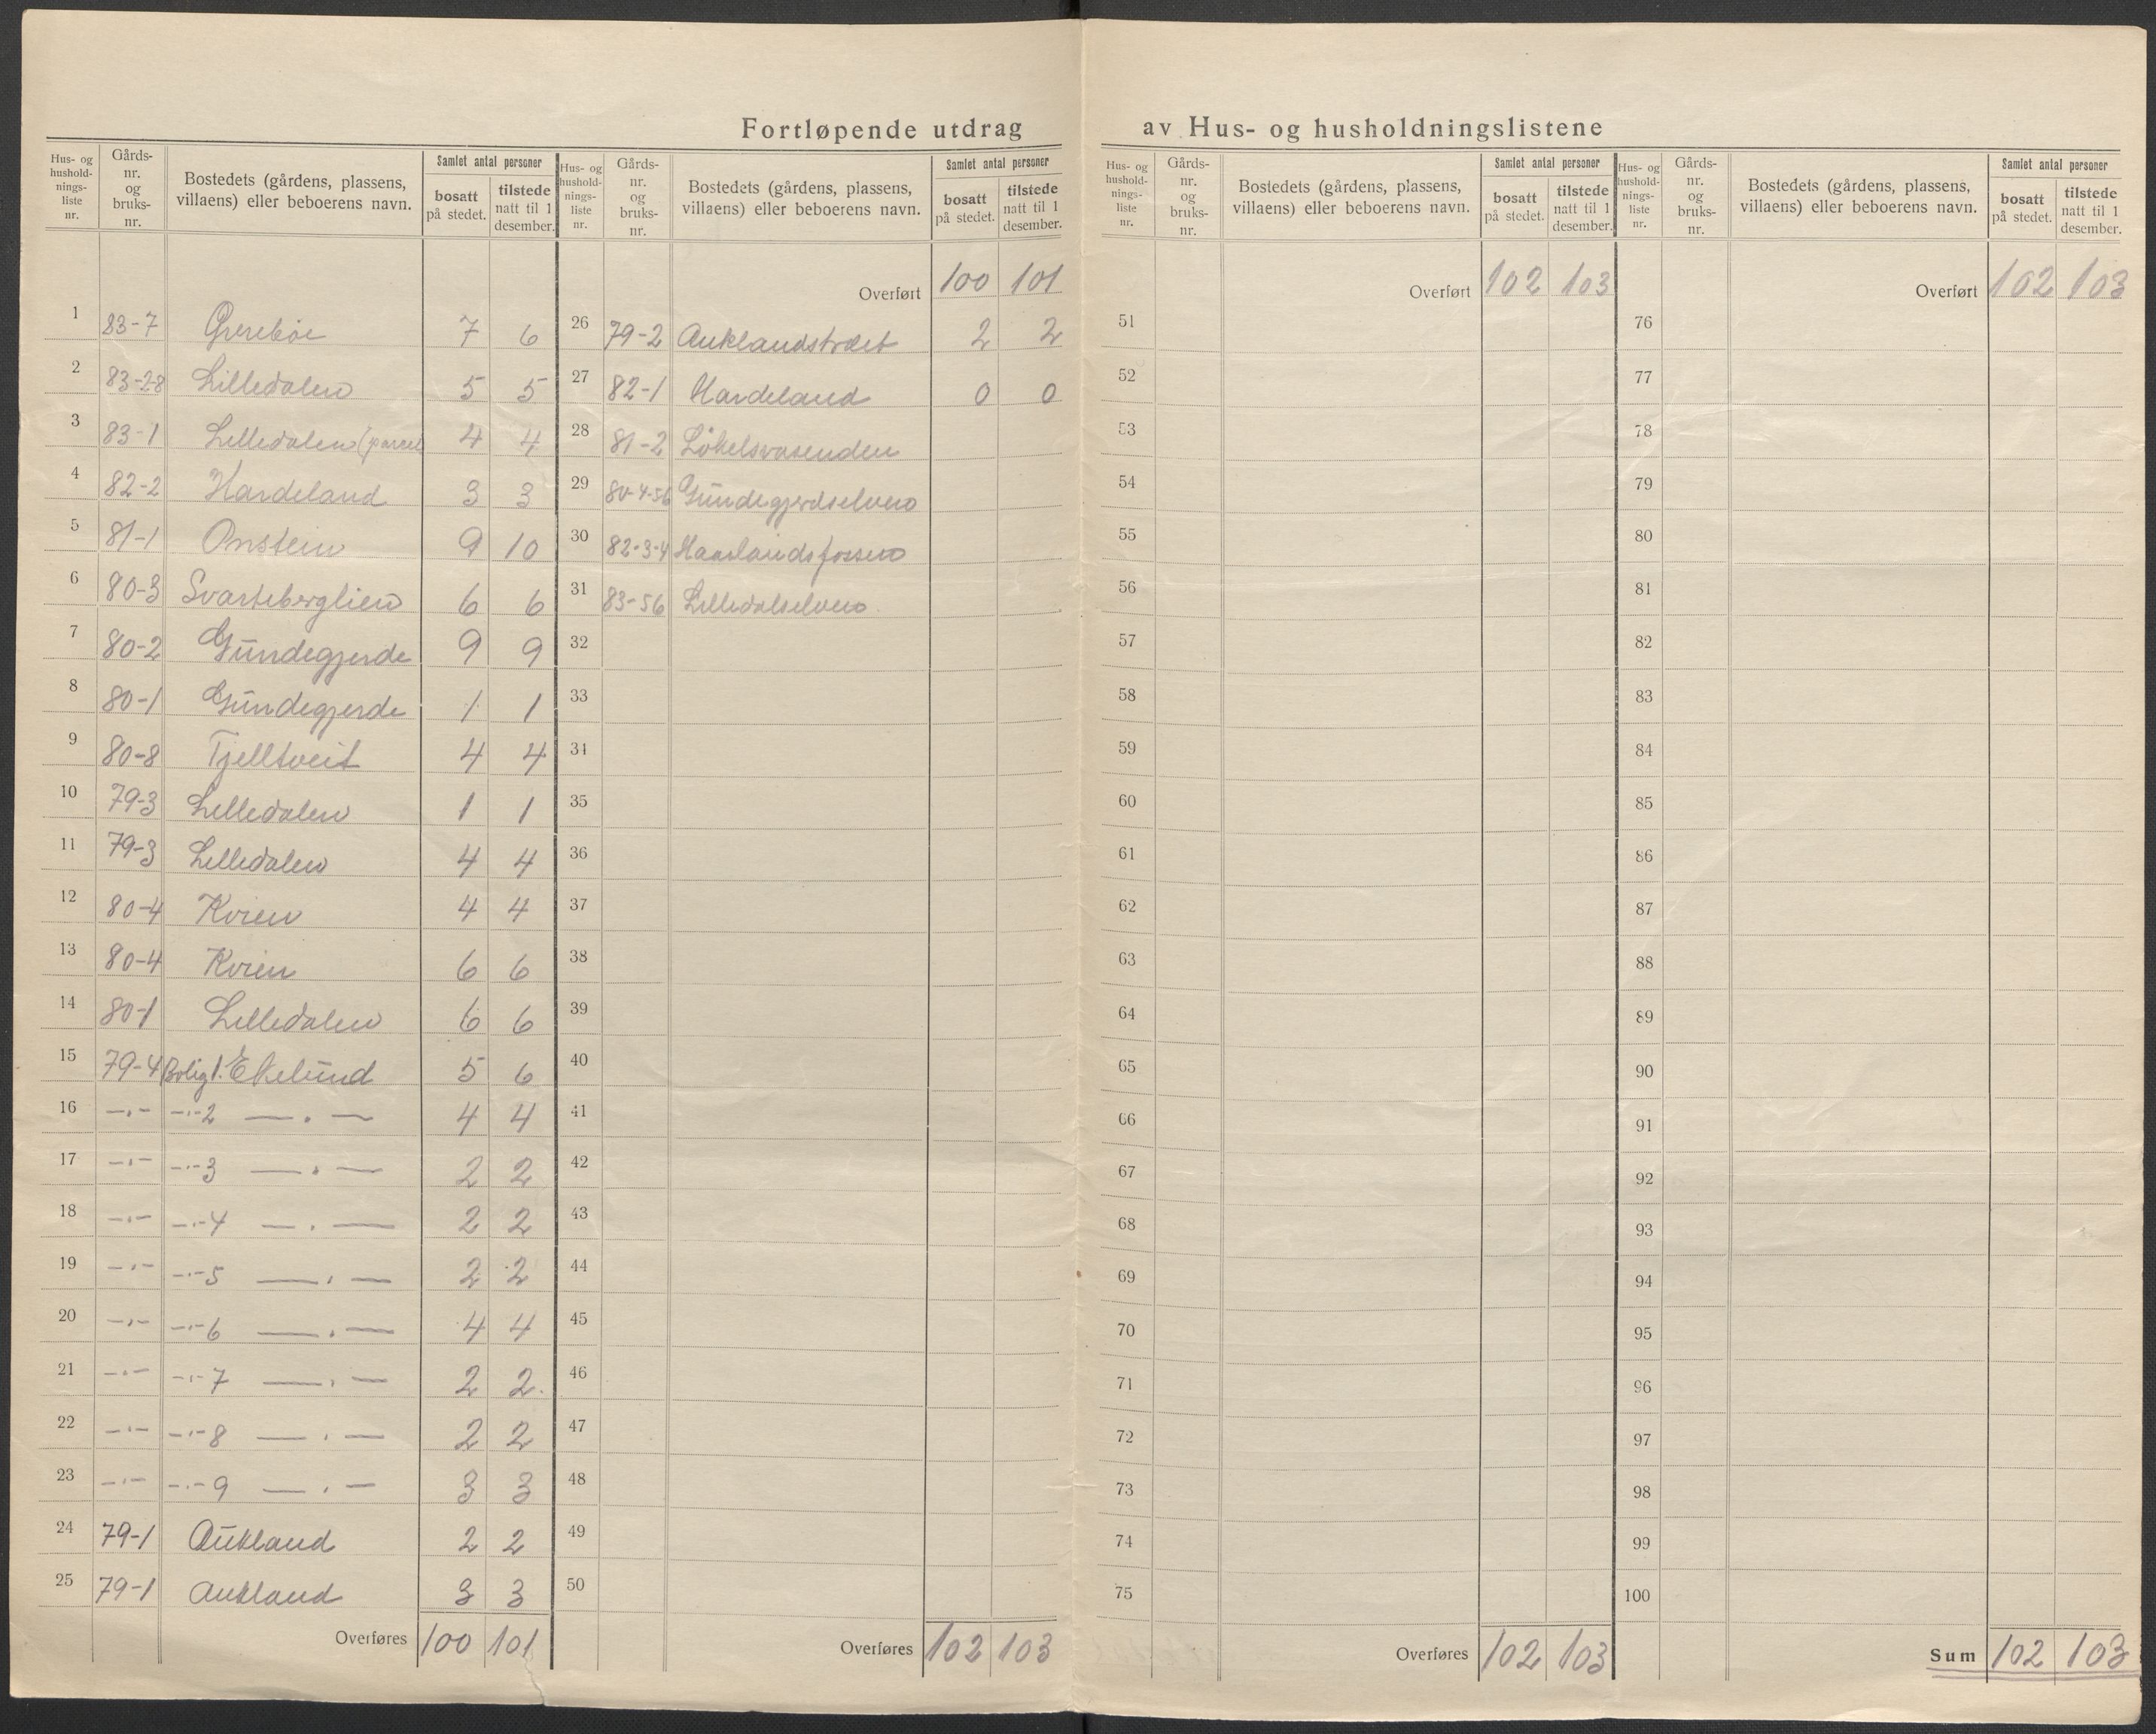 Fortløpende utdrag av Hus- og husholdningslistene
Hus- og hushold-nings-liste nr. | Gårds-nr. og bruks-nr. | Bostedets (gårdens, plassens, villaens) eller beboerens navn. | Samlet antal personer | bosatt på stedet. | tilstede natt til 1 desember.
1 83-7 7 6
2 83-2-8 Lilledalen 5 5
3 83-1 Lilledalen (parcel 4 4
4 82-2 Hardeland 3 3
5 81-1 Onstein 9 10
6 80-3 Svarteberglien 6 6
7 80-2 Gundegjerde 9 9
8 80-1 Gundegjerde 1 1
9 80-8 Tjelltveit 4 4
10 79-3 Lilledalen 1 1
11 79-3 Lilledalen 4 4
12 80-4 Kvien 4 4
13 80-4 Kvien 6 6
14 80-1 Lilledalen 6 6
15 79-4 Bolig 1. Ekelund 5 6
16 —"— —"— 2 —"— 4 4
17 —"— —"— 3 —"— 2 2
18 —"— —"— 4 —"— 2 2
19 —"— —"— 5 —"— 2 2
20 —"— —"— 6 —"— 4 4
21 —"— —"— 7 —"— 2 2
22 —"— —"— 8 —"— 2 2
23 —"— —"— 9 —"— 3 3
24 79-1 Aukland 2 2
25 79-1 Aukland 3 3
Overføres 100 101
Hus- og hushold-nings-liste nr. | Gårds-nr. og bruks-nr. | Bostedets (gårdens, plassens, villaens) eller beboerens navn. | Samlet antal personer | bosatt på stedet. | tilstede natt til 1 desember.
Overført 100 101
26 79-2 Auklandstræet 2 2
27 82-1 Hardeland 0 0
28 81-2 Løkelsvasenden
29 80-4-56 Gundegjerdselven
30 82-3-4
31 83-56 Lilledalselven
32
33
34
35
36
37
38
39
40
41
42
43
44
45
46
47
48
49
50
Overføres 102 103
Hus- og hushold-nings-liste nr. | Gårds-nr. og bruks-nr. | Bostedets (gårdens, plassens, villaens) eller beboerens navn. | Samlet antal personer | bosatt på stedet. | tilstede natt til 1 desember.
Overført 102 103
51
52
53
54
55
56
57
58
59
60
61
62
63
64
65
66
67
68
69
70
71
72
73
74
75
Overføres 102 103
Hus- og hushold-nings-liste nr. | Gårds-nr. og bruks-nr. | Bostedets (gårdens, plassens, villaens) eller beboerens navn. | Samlet antal personer | bosatt på stedet. | tilstede natt til 1 desember.
Overført 102 103
76
77
78
79
80
81
82
83
84
85
86
87
88
89
90
91
92
93
94
95
96
97
98
99
100
Sum 102 103